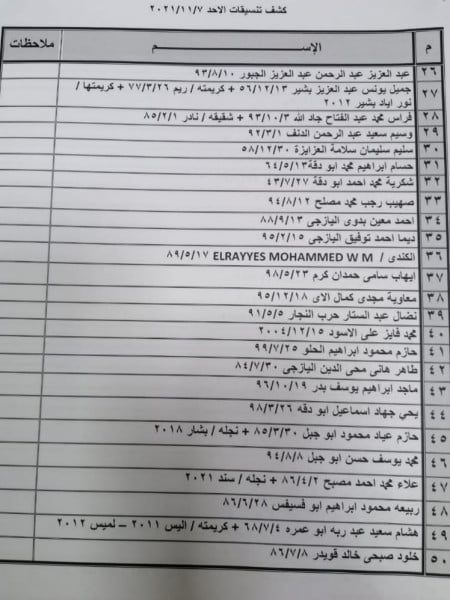 كشف تنسيقات الاحد ٢٠٢١/١١/٧
م الإســـم ملاحظات
٢٦ عبد العزيز عبد الرحمن عبد العزيز الجبور ٩٣/٨/١٠
٢٧ جميل يونس عبد العزيز بشير ٥٦/١٢/١٣ + كريمته / ريم ٧٧/٣/٢٦ + كريمتها /
نور اياد بشير ٢٠١٢
٢٨ فراس محمد عبد الفتاح جاد الله ٩٣/١٠/٣ + شقيقه / نادر ٨٥/٢/١
٢٩ وسيم سعيد عبد الرحمن الدنف ٩٢/٣/١
٣٠ سليم سليمان سلامة العزايزة ٥٨/١٢/٣٠
٣١ حسام ابراهيم محمد ابو دقة ٦٤/٥/١٣
٣٢ شكرية محمد احمد ابو دقة ٤٣/٧/٢٧
٣٣ صهيب رجب محمد مصلح ٩٤/٨/١٢
٣٤ احمد معين بدوى اليازجى ٨٨/٩/١٣
٣٥ ديما احمد توفيق اليازجى ٩٥/٢/١٥
٣٦ الكندى / ELRAYYES MOHAMMED W M ٨٩/٥/١٧
٣٧ ايهاب سامى حمدان كرم ٩٨/٥/٢٣
٣٨ معاوية مجدى كمال الاى ٩٥/١٢/١٨
٣٩ نضال عبد الستار حرب النجار ٩١/٥/٥
٤٠ محمد فايز على الاسود ٢٠٠٤/١٢/١٥
٤١ حازم محمود ابراهيم الحلو ٩٩/٧/٢٥
٤٢ طاهر هانى محى الدين اليازجى ٨٤/٧/٣٠
٤٣ ماجد ابراهيم يوسف بدر ٩٦/١٠/١٩
٤٤ يحي جهاد اسماعيل ابو دقه ٩٨/٣/٢٦
٤٥ حازم عياد محمود ابو جبل ٨٥/٣/٣٠ + نجله / بشار ٢٠١٨
٤٦ محمد يوسف حسن ابو جبل ٩٤/٨/٨
٤٧ علاء محمد احمد مصبح ٨٦/٤/٢ + نجله / سند ٢٠٢١
٤٨ ربيعه محمود ابراهيم ابو فسيفس ٨٦/٦/٢٨
٤٩ هشام سعيد عبد ربه ابو عمره ٦٨/٧/٤ + كريمته / اليس ٢٠١١ – لميس ٢٠١٢
٥٠ خلود صبحى خالد قويدر ٨٦/٧/٨